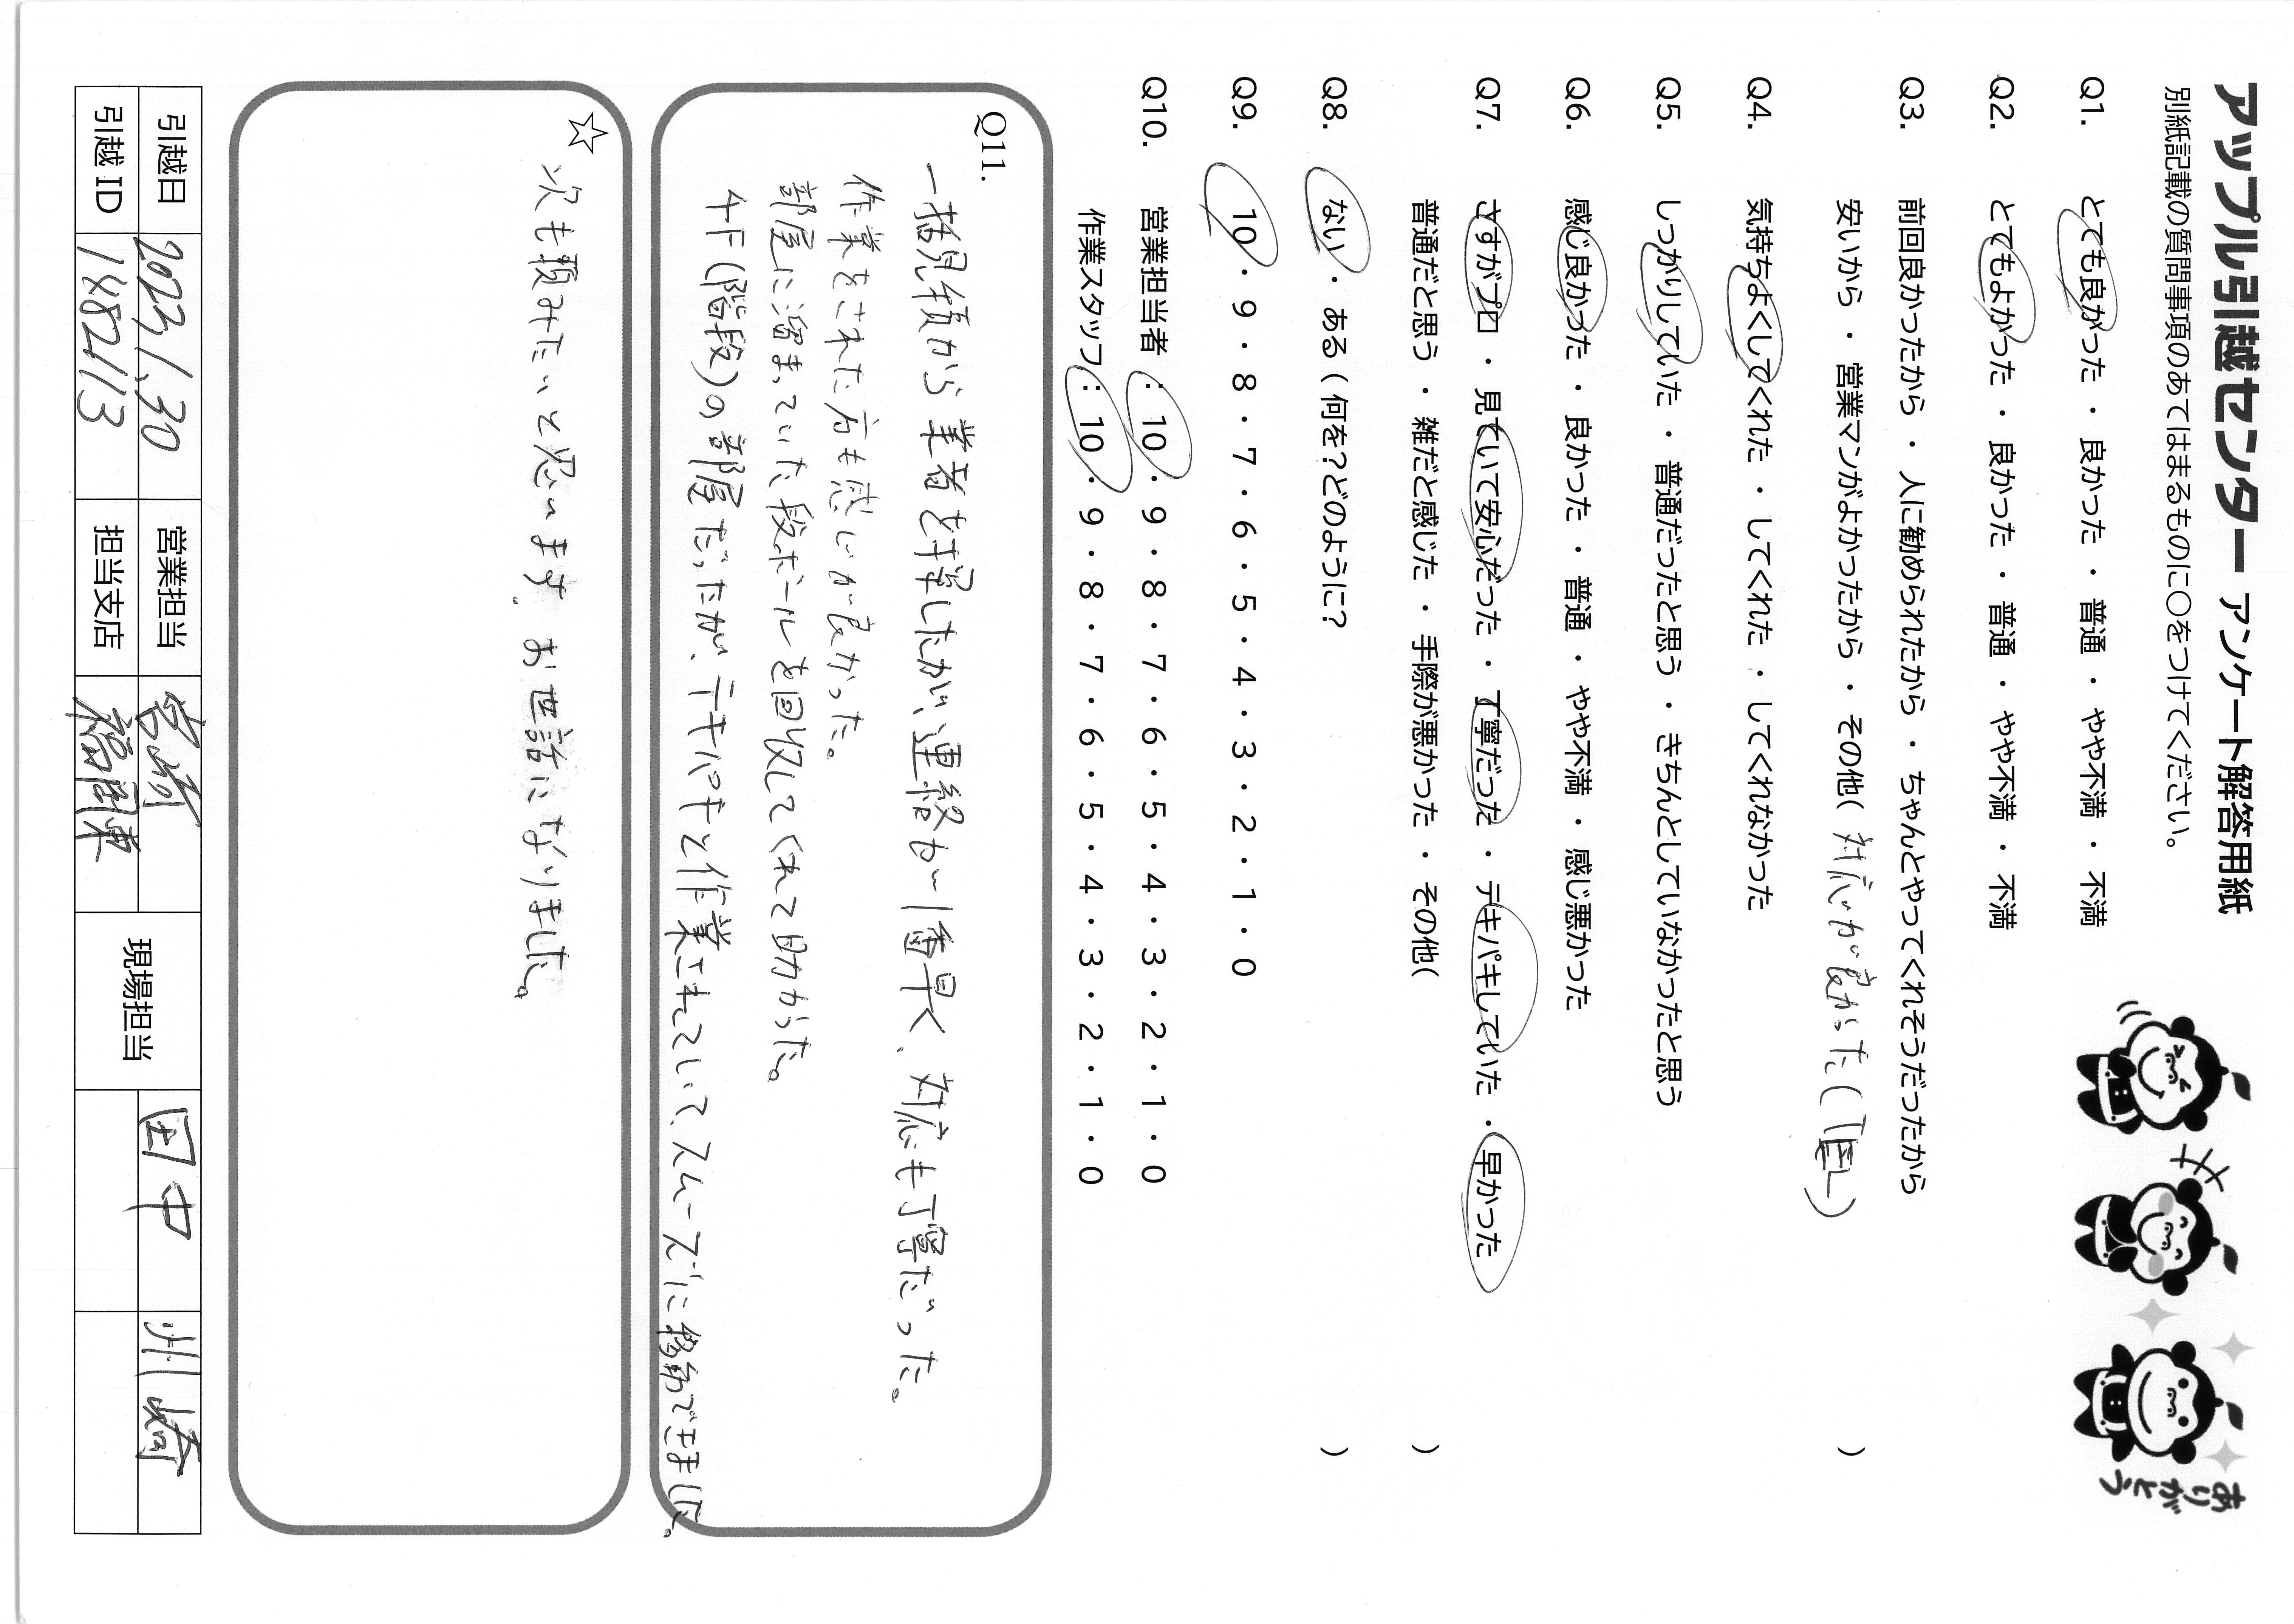 アップル引越センター アンケート解答用紙
別紙記載の質問事項のあてはまるものに○をつけてください。
Q1. とても良かった ・ 良かった ・ 普通 ・ やや不満 ・ 不満
Q2. とてもよかった ・ 良かった ・ 普通 ・ やや不満 ・ 不満
Q3. 前回良かったから ・ 人に勧められたから ・ ちゃんとやってくれそうだったから
安いから ・ 営業マンがよかったから ・ その他( 対応が良かった ( ) )
Q4. 気持ちよくしてくれた ・ してくれた ・ してくれなかった
Q5. しっかりしていた ・ 普通だったと思う ・ きちんとしていなかったと思う
Q6. 感じ良かった ・ 良かった ・ 普通 ・ やや不満 ・ 感じ悪かった
Q7. さすがプロ ・ 見ていて安心だった ・ 丁寧だった ・ テキパキしていた ・ 早かった
普通だと思う ・ 雑だと感じた ・ 手際が悪かった ・ その他( )
Q8. ない ・ ある ( 何を？どのように？ )
Q9. 10 ・ 9 ・ 8 ・ 7 ・ 6 ・ 5 ・ 4 ・ 3 ・ 2 ・ 1 ・ 0
Q10. 営業担当者 : 10 ・ 9 ・ 8 ・ 7 ・ 6 ・ 5 ・ 4 ・ 3 ・ 2 ・ 1 ・ 0
作業スタッフ : 10 ・ 9 ・ 8 ・ 7 ・ 6 ・ 5 ・ 4 ・ 3 ・ 2 ・ 1 ・ 0
ありがとう
Q11.
一括見積から業者を探したが、連絡が一番早く、対応も丁寧だった。
作業をされた方も感じが良かった。
部屋に溜まっていた段ボールを回収してくれて助かった。
4F(階段)の部屋だったが、テキパキと作業されていて、スムーズに移動できました。
☆
次も頼みたいと思います。お世話になりました。
引越日 2023.1.30 営業担当 宮崎 現場担当 田中 川崎
引越 ID 1882113 担当支店 福岡東